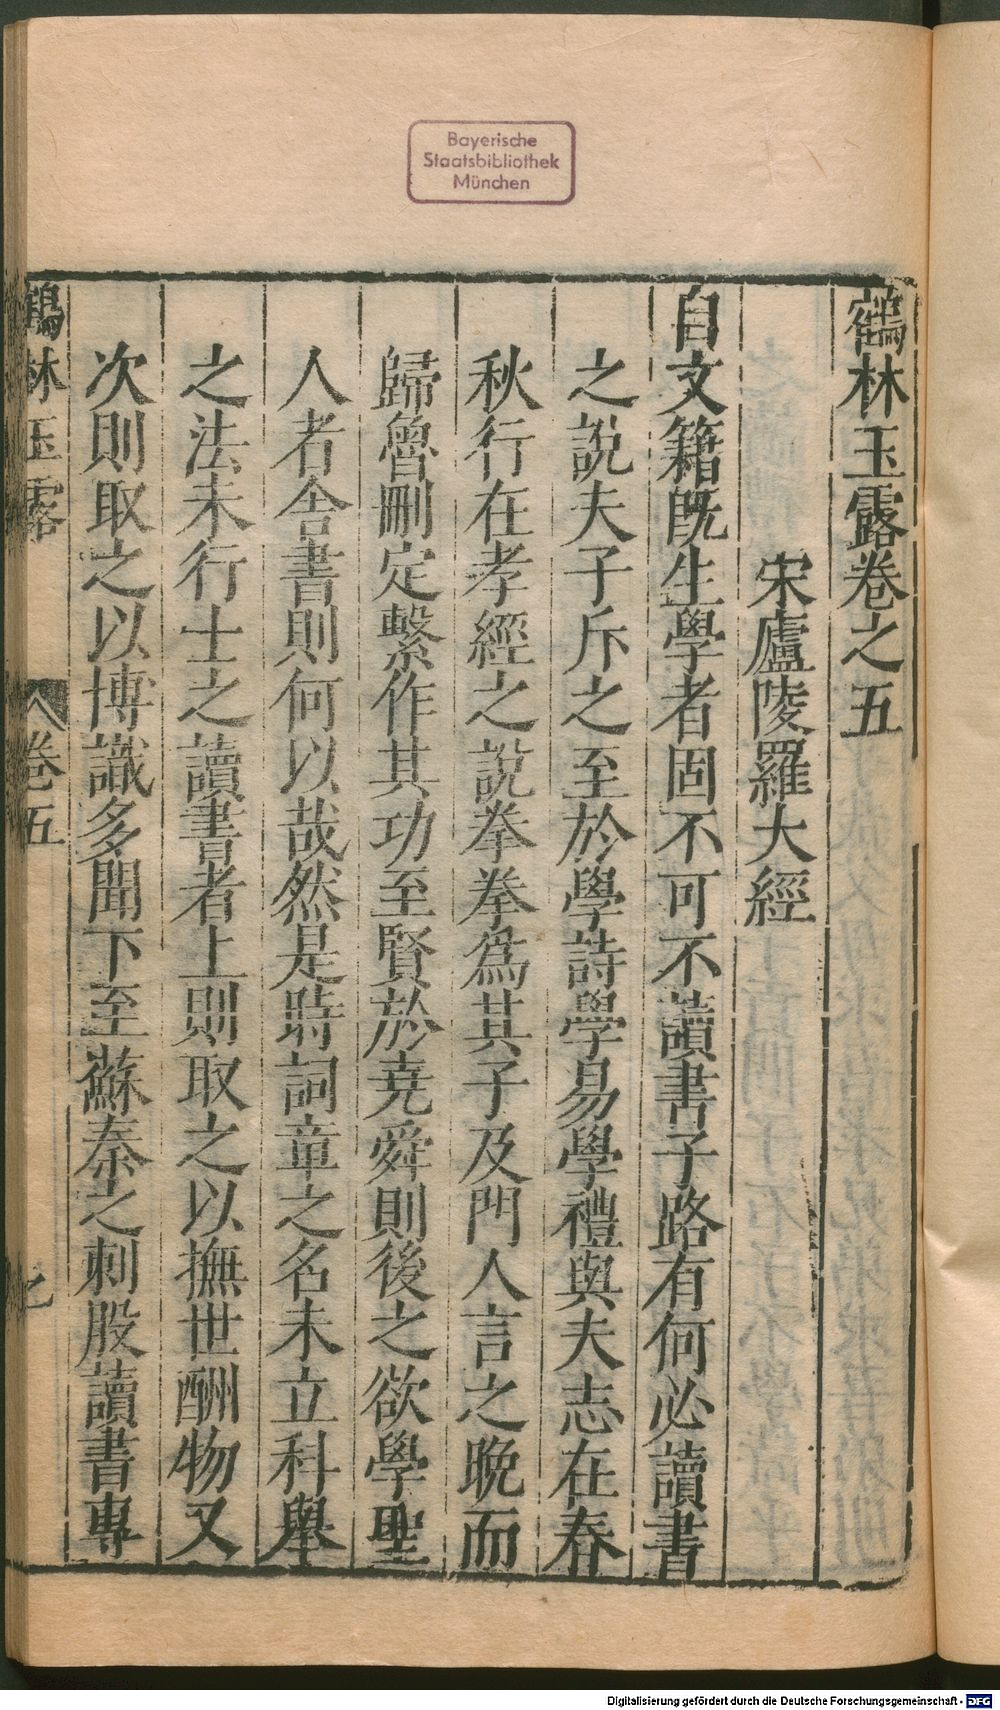 Bayerische
Staatsbibliothek
München
鶴林玉露卷之五
宋廬陵羅大經
自文籍旣生學者固不可不讀書子路有何必讀書
之說夫子斥之至於學詩學易學禮與夫志在春
秋行在孝經之說拳拳爲其子及門人言之晚而
歸魯刪定繫作其功至賢於堯舜則後之欲學聖
人者舍書則何以哉然是時詞章之名未立科舉
之法未行士之讀書者上則取之以撫世酬物又
次則取之以博識多聞下至蘇秦之刺股讀書專
鶴林玉露 卷五
Digitalisierung gefördert durch die Deutsche Forschungsgemeinschaft - DFG